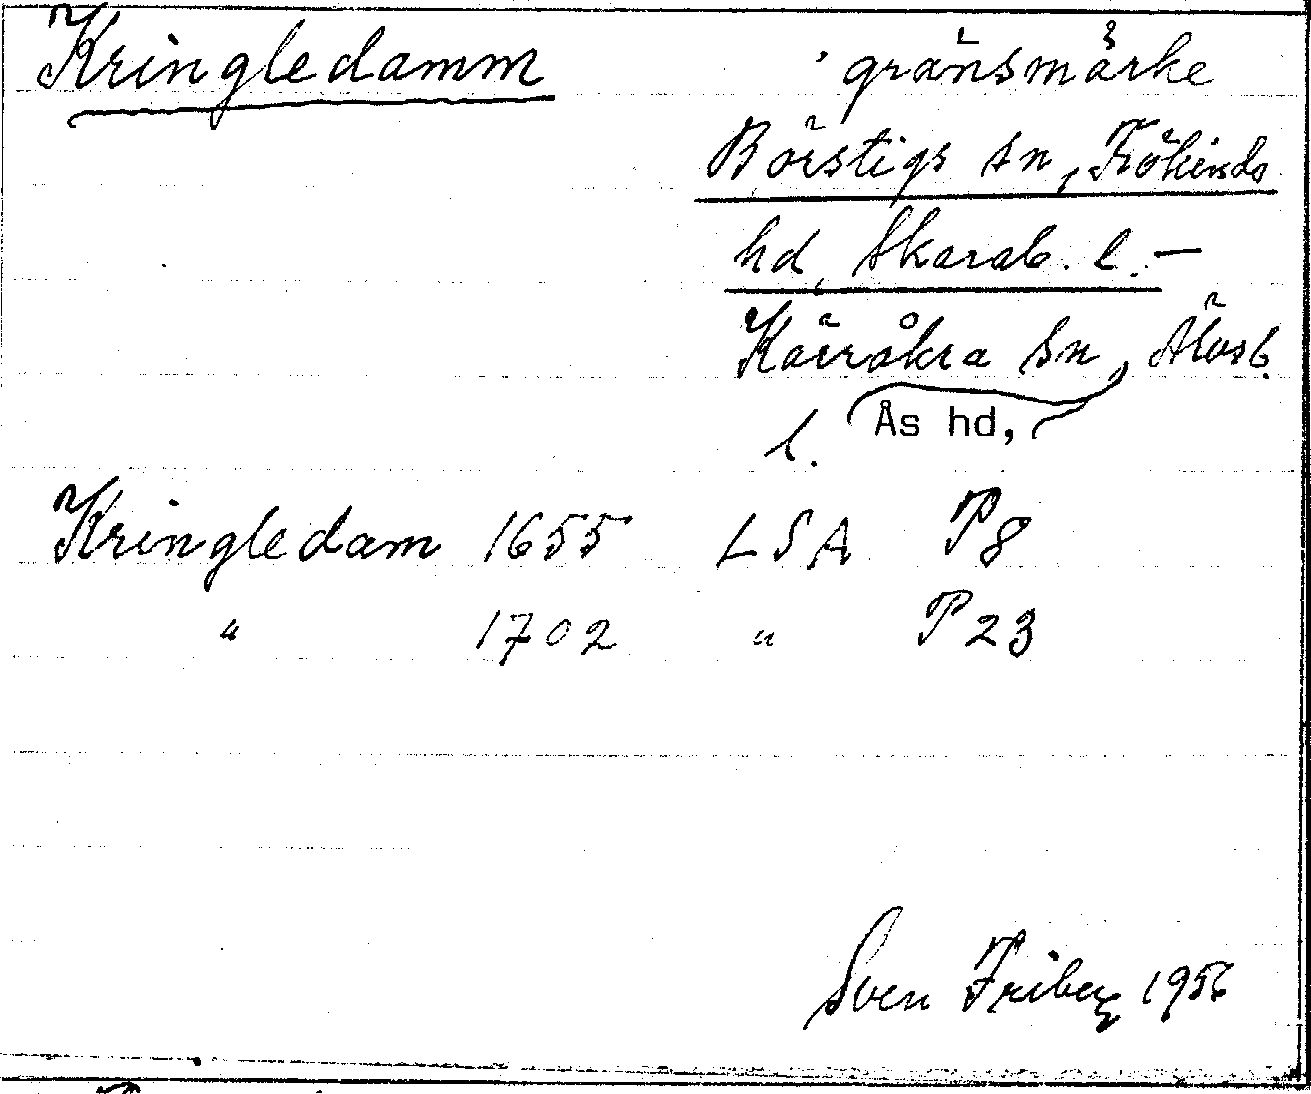 Kringledamm gränsmärke
Börstigs sn, Frökinds
hd, Skarab. l. —
Kärråkra sn, Älvsb.
l. Ås hd,
Kringledam 1655 LSA P8
" 1702 " P23
Sven Friberg 1956